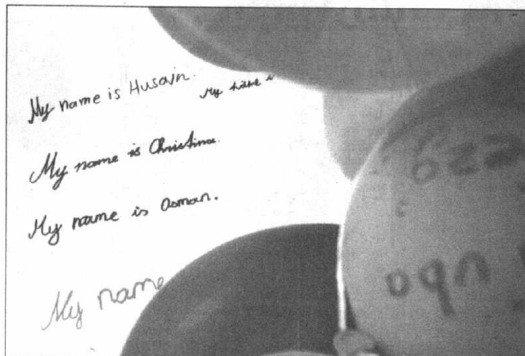 My name is Husain.
My name i
My name is Christina.
My name is Osman.
My name